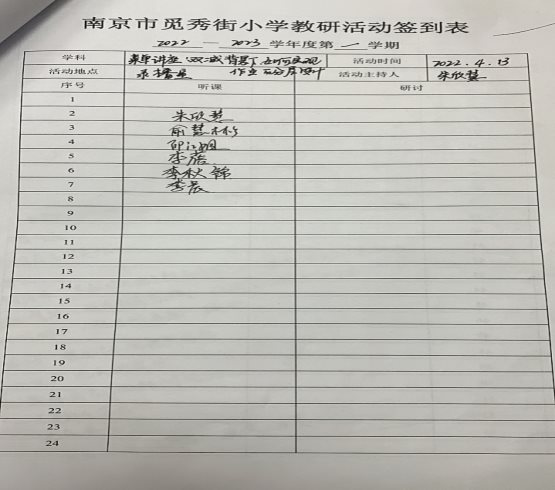 南京市觅秀街小学教研活动签到表
2022 — 2023 学年度第 一 学期
学科 菜单讲座 "双减"背景下如何实现 活动时间 2022.4.13
活动地点 录播室 作业 设计 活动主持人 朱欣慧
序号 听课 研讨
1
2 朱欣慧
3 俞慧彬
4
5 李蓓
6 李秋锦
7 李晨
8
9
10
11
12
13
14
15
16
17
18
19
20
21
22
23
24